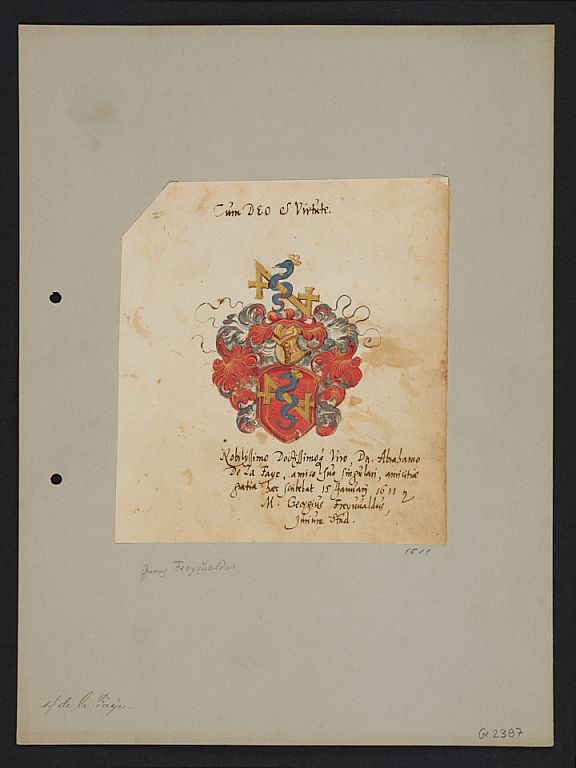 Cum DEO & Virtute.
Nobilissimo Doctissimoq Viro, Dn. Abrahamo
De La Faye, amico suo singulari, amicitiæ
gratia hæc scribebat 15 January 1611
M. Georgius Freyuualdus,
Jurium Stud.
1611
Georg Freyuualdus
de la Faye.
Gi 2397